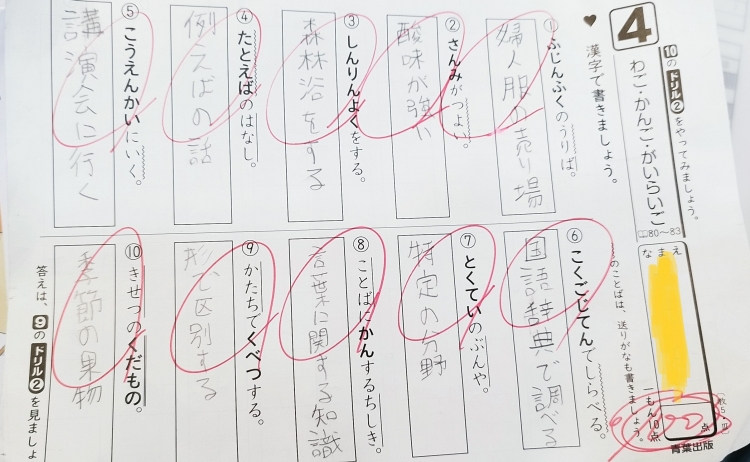 4
10のドリル②をやってみましょう。
わご・かんご・がいらいご
80～83
なまえ
♥ 漢字で書きましょう。
のことばは、送りがなも書きましょう。
一もん10点
100点
教5・
青葉出版
① ふじんふくのうりば。
婦人服の売り場
② さんみがつよい。
酸味が強い
③ しんりんよくをする。
森林浴をする
④ たとえばのはなし。
例えばの話
⑤ こうえんかいにいく。
講演会に行く
⑥ こくごじてんでしらべる。
国語辞典で調べる
⑦ とくていのぶんや。
特定の分野
⑧ ことばにかんするちしき。
言葉に関する知識
⑨ かたちでくべつする。
形で区別する
⑩ きせつのくだもの。
季節の果物
答えは、9のドリル②を見ましょ